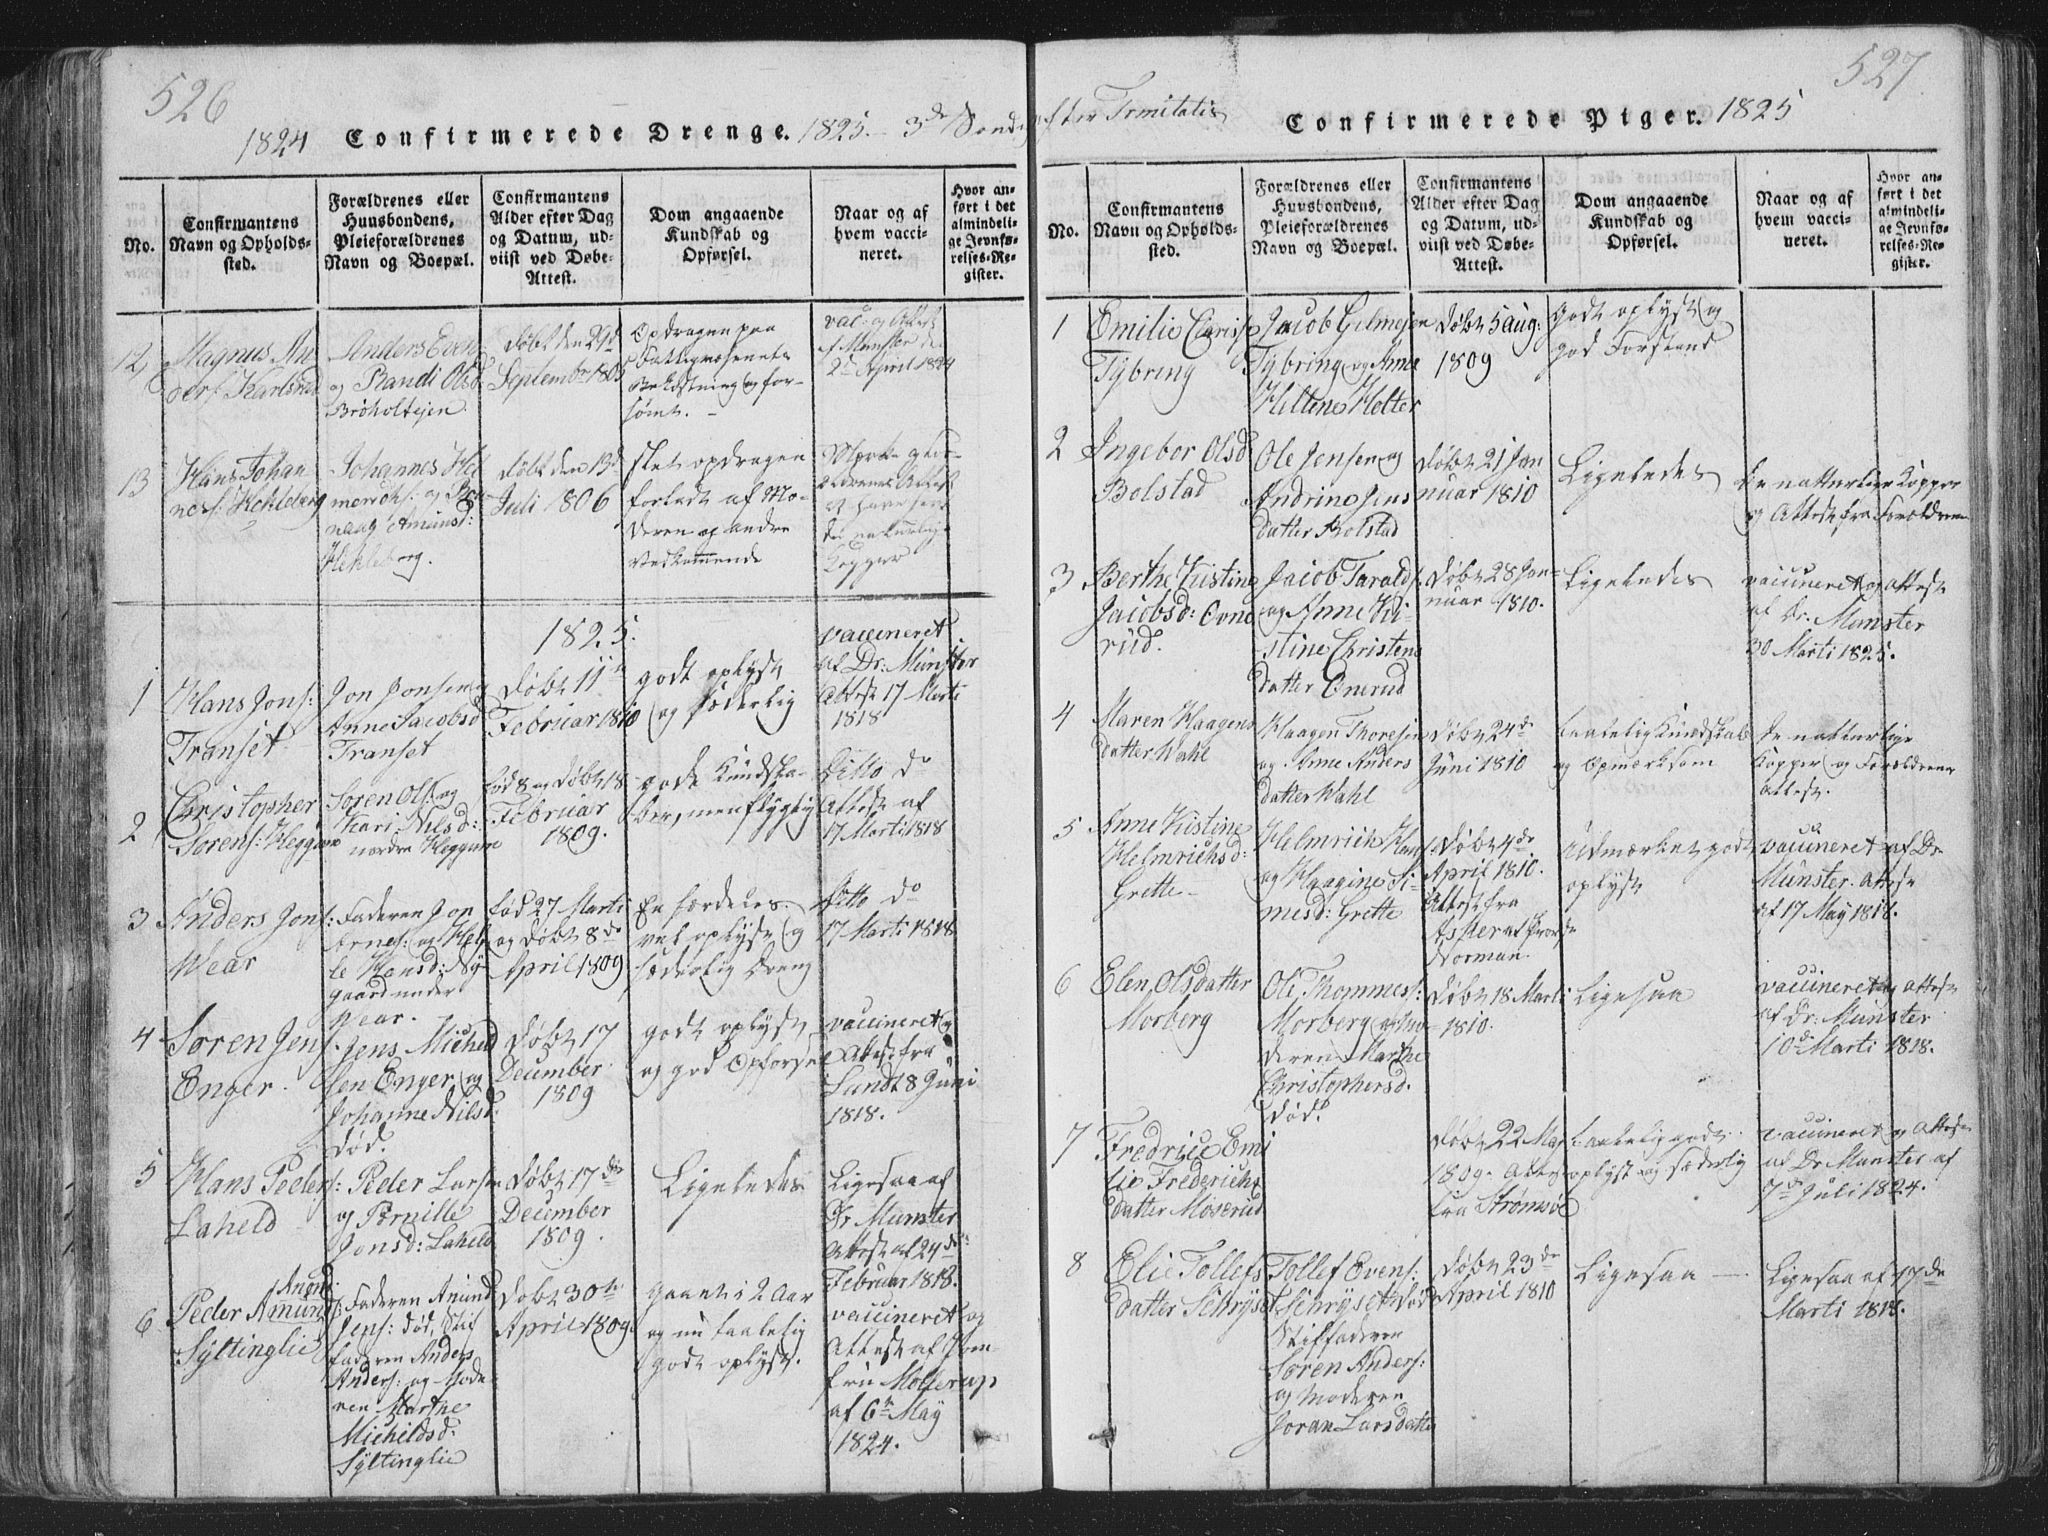 526
1824 Confirmerede Drenge. 1825. 3de Søndag efter Trinitatis
No.
Confirmantens
Navn og Opholds-
sted.
Forældrenes eller
Huusbondens,
Pleieforældrenes
Navn og Boepæl.
Confirmantens
Alder efter Dag
og Datum, ud-
viist ved Døbe-
Attest.
Dom angaaende
Kundskab og
Opførsel.
Naar og af
hvem vacci-
neret.
Hvor an-
ført i det
almindeli-
ge Jevnfø-
relses-Re-
gister.
12
Magnus An
ders: Karlsrud
Anders Even
og Randi Olsd
Bröholtejen
Døbt den 29d
September 1805
Opdragen paa
Fattigvæsenets
Bekostning og for-
sømt.
vac: og Attest
f. Munster de
2d April 1824
13
Hans Johan
nes: Hekleberg
Johannes Hel
naag Amunds:
Hekleberg.
Døbt den 13d
Juli 1806
slet opdragen
forladt af Mo-
deren og andre
Vedkommende
ældrenes Attest
at have havt
de naturlige
Kopper
1825.
1
Hans Jons:
Transet
Jon Jonsen og
Anne Jacobsd
Transet
Døbt 11te
Februar 1810
godt oplyst
og sædelig
vaccineret
af Dr: Münster
Attest 17 Marti
1818
2
Christopher
Sorens: Heggum
Soren Ols: og
Kari Nilsd:
nordre Heggum
fød 8 og Døbt 18
Februar
1809.
gode Kundska-
ber, men flygtig
Ditto do
Attest af
17 Marti 1818
3
Anders Jons:
Wear
Faderen Jon
Arnes: og Hel
le Hansd: Ny-
gaard under
Wear.
fød 27 Marti
og Døbt 8de
April 1809
En særdeles
vel oplyst og
sædelig Dreng
Ditto do
17 Marti 1818
4
Soren Jens:
Enger
Jens Michel
sen Enger og
Johanne Nilsd:
død.
Døbt 17
December
1809
godt oplyst
og god Opførsel
vaccineret og
Attest fra
Lund 8 Juni
1818.
5
Hans Peders:
Laheld
Peder Larsen
og Pernille
Jonsd: Laheld
Døbt 17de
December
1809.
Ligeledes
Ligesaa af
Dr Munster
Attest af 24de
Februar 1818.
6
Anund
Peder Amunds:
Syltinglie
Faderen Anund
Jens: død, Stif
faderen Anders
Anders: og Mode
ren Marthe
Michelsd:
Syltinglie
Døbt 30te
April 1809
Gaaet i 2 Aar
og nu taalelig
godt oplyst.
vaccineret og
Attest af Jom-
fru Mollerup
af 6te May
1824.
527
Confirmerede Piger. 1825
No.
Confirmantens
Navn og Opholds-
sted.
Forældrenes eller
Huusbondens,
Pleieforældrenes
Navn og Boepæl.
Confirmantens
Alder efter Dag
og Datum, ud-
viist ved Døbe-
Attest.
Dom angaaende
Kundskab og
Opførsel.
Naar og af
hvem vacci-
neret.
Hvor an-
ført i det
almindeli-
ge Jevnfø-
relses-Re-
gister.
1
Emilie Clarisse
Tybring
Jacob Gelmejen
Tybring og Anne
Hellene Holter
Døbt 5 aug:
1809
Godt oplyst og
god Forstand
2
Ingebor Olsd
Bolstad
Ole Jensen og
Andrine Jens
datter Bolstad
Døbt 21 Jan
nuar 1810
Ligeledes
De naturlige Kopper
og Attest fra Forældrene
3
Berthe Kistine
Jacobsd: Gone
rud.
Jacob Taralds:
og Anne Ki-
stine Christens
datter Onerud
Døbt 28 Jan-
nuar 1810.
Ligeledes
vaccineret og attest
af Dr. Munster
30 Marti 1825.
4
Maren Haagens
datter Wahl
Haagen Thoresen
og Anne Anders
datter Wahl
Døbt 24de
Juni 1810
taalelig Kundskab
og Opmærksom
De naturlige
Kopper og Forældrenes
attest.
5
Anne Kistine
Helmrichsd:
Grette
Helmrich Hans:
og Haagine Si-
mesd: Grette
Døbt 4de
April 1810.
Attest fra
Asker af Provst
Norman.
Udmærket godt
oplyst
vaccineret af Dr.
Munster. attest
af 17 May 1818.
6
Elen Olsdatter
Morberg
Ole Thommes:
Morberg og Mo-
deren Marthe
Christophersd.
død.
Døbt 18 Marti
1810.
Ligesaa
vaccineret og attest
af Dr: Munster
10de Marti 1818.
7
Fredrice Emi
lie Frederichs
datter Moserud
Døbt 22 May
1809. Attest
fra Strømsöe
taalelig godt
oplyst og sædelig
vaccineret og Attest
af Dr Munster af
7de Juli 1824.
8
Elie Tollefs
datter Schryset
Tollef Evens:
Schryset død
Stiffaderen
Soren Anders:
og Moderen
Joran Larsdatter
Døbt 23de
April 1810
Ligesaa
Ligesaa af 17de
Marti 1818.